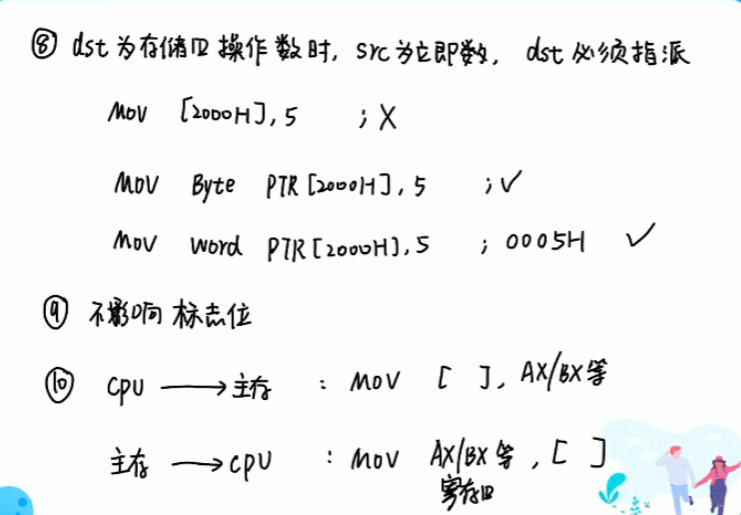 ⑧ dst为存储器操作数时, src为立即数, dst必须指派
MOV [2000H], 5 ; X
MOV Byte PTR [2000H], 5 ; ✓
MOV word PTR [2000H], 5 ; 0005H ✓
⑨ 不影响标志位
⑩ CPU → 主存 : MOV [ ], AX/BX等
主存 → CPU : MOV AX/BX等, [ ]
寄存器